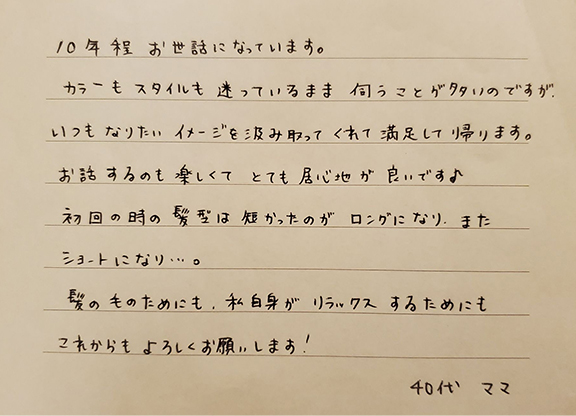 10年程 お世話になっています。
カラーもスタイルも 迷っているまま 伺うことが多いのですが、
いつもなりたいイメージを汲み取ってくれて満足して帰ります。
お話するのも楽しくて とても居心地が良いです♪
初回の時の髪型は短かったのが ロングになり、また
ショートになり…。
髪のもののためにも、私自身が リラックスするためにも
これからもよろしくお願いします!
40代 ママ